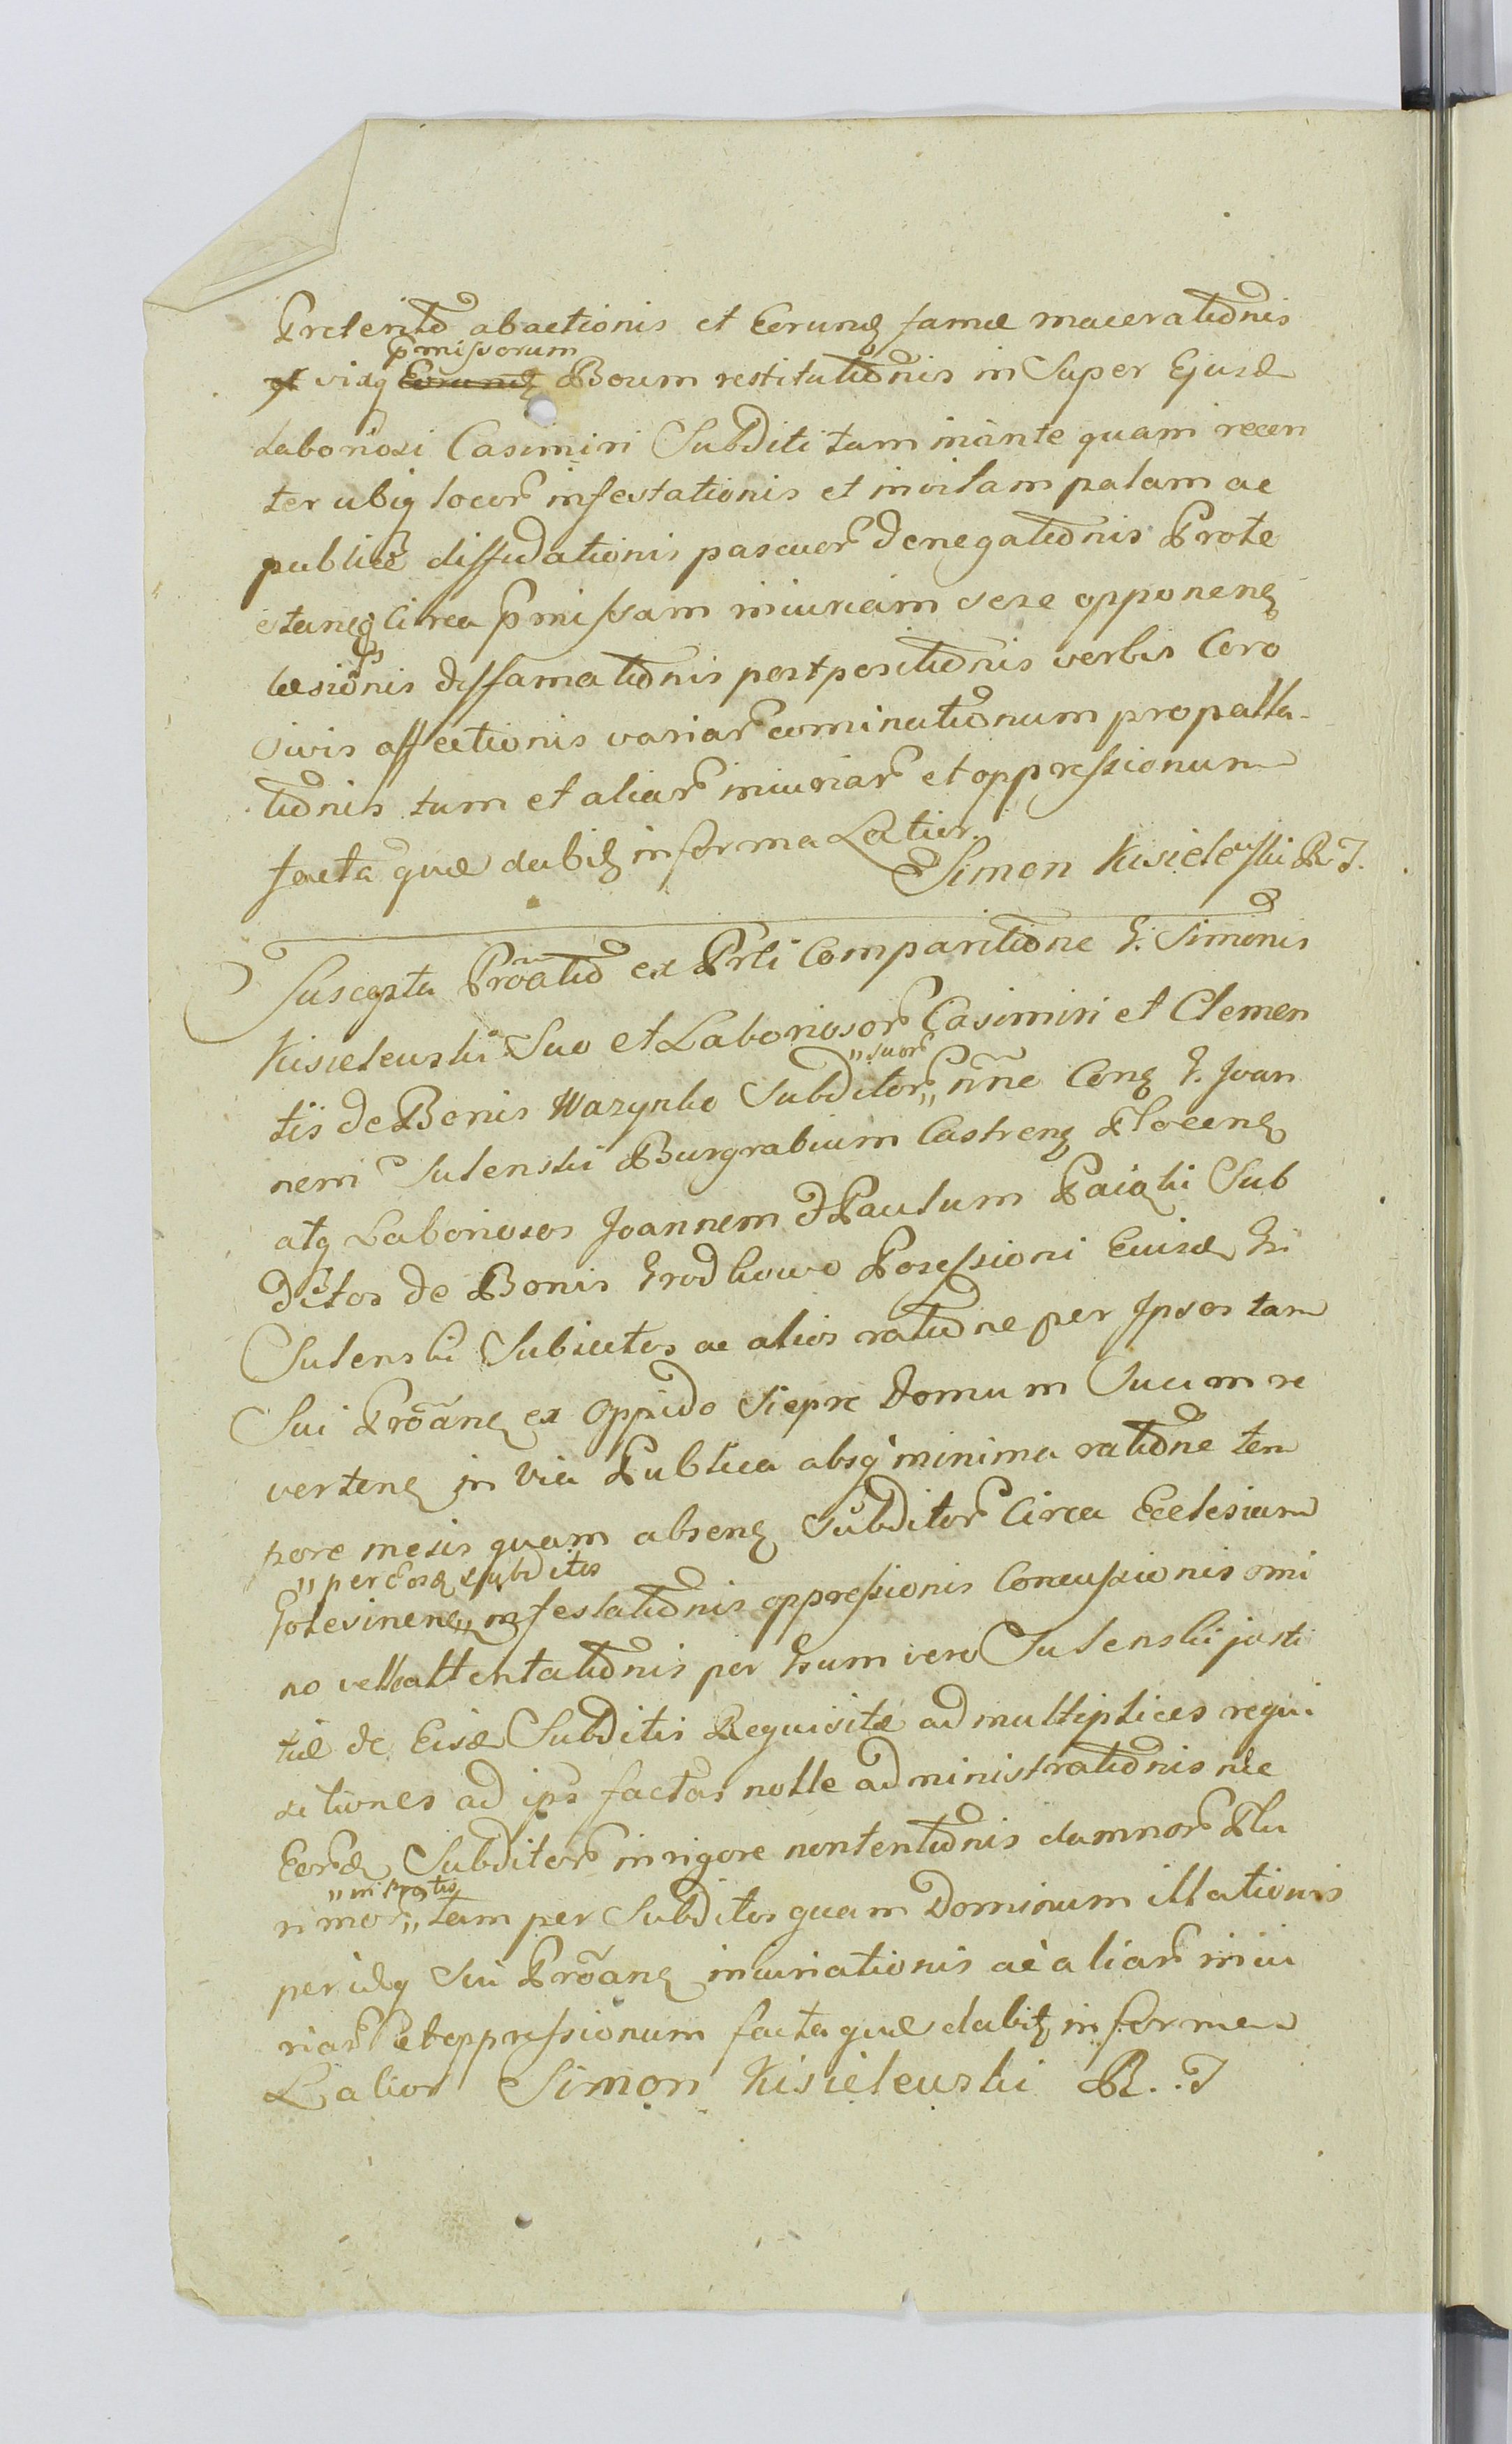 Preterito abactionis et Eorund famæ macerationis
pmissorum
et vidq Eorund Boum restitutionis in Super Ejusd
Laboriosi Casimiri Subditi tam inante quam recen
ter ubiq locor infestationis et invitam palam ac
publice diffidationis pascuor denegationis Prote
stanq Circa pmissam iniuriam sese opponenq
læsionis diffamationis postpositionis verbis Coro
sivis affectionis variar cominationum propalla-
tionis tum et aliar iniuriar et oppressionum
facta quæ dabit in forma Latior.
Simon Kisielewski R. T.
Suscepta Proatio ex Prli Comparitione G. Simonis
Kisieleuski Suo et Laboriosor Casimiri et Clemen
tis de Bonis Wazynko Subditor „suor„ nne Conq G. Joan
nem Sulenski Burgrabium Castrenq Plocenq
atq Laboriosos Joannem et Paulum Paiąki Sub
ditos de Bonis Grodkowo Posessioni Eiusd Gi
Sulenski Subiectos ac alios ratione per Ipsos tam
Sui Proanq ex Oppido Siepre Domum Suam re
vertenq in via Publica absq minima ratione tem
pore mesis quam absenq Subditor Circa Ecclesiam
„per Eosd Subditos
infestationis oppressionis Concussionis omi
no velle attentationis per Gsum vero Sulenski justi
tiæ de Eisd Subditis Requisitæ ad multiplices requi
sitiones ad ips factas nolle administrationis nec
Eord Subditor in rigore nontentionis damnor Plu
rimor „ tam per Subditos quam Dominum illationis
per idq Sui Proanq iniuriationis ac aliar iniu
riar et oppressionum facta quæ dabit in forma
Latior Simon Kisieleuski R. T